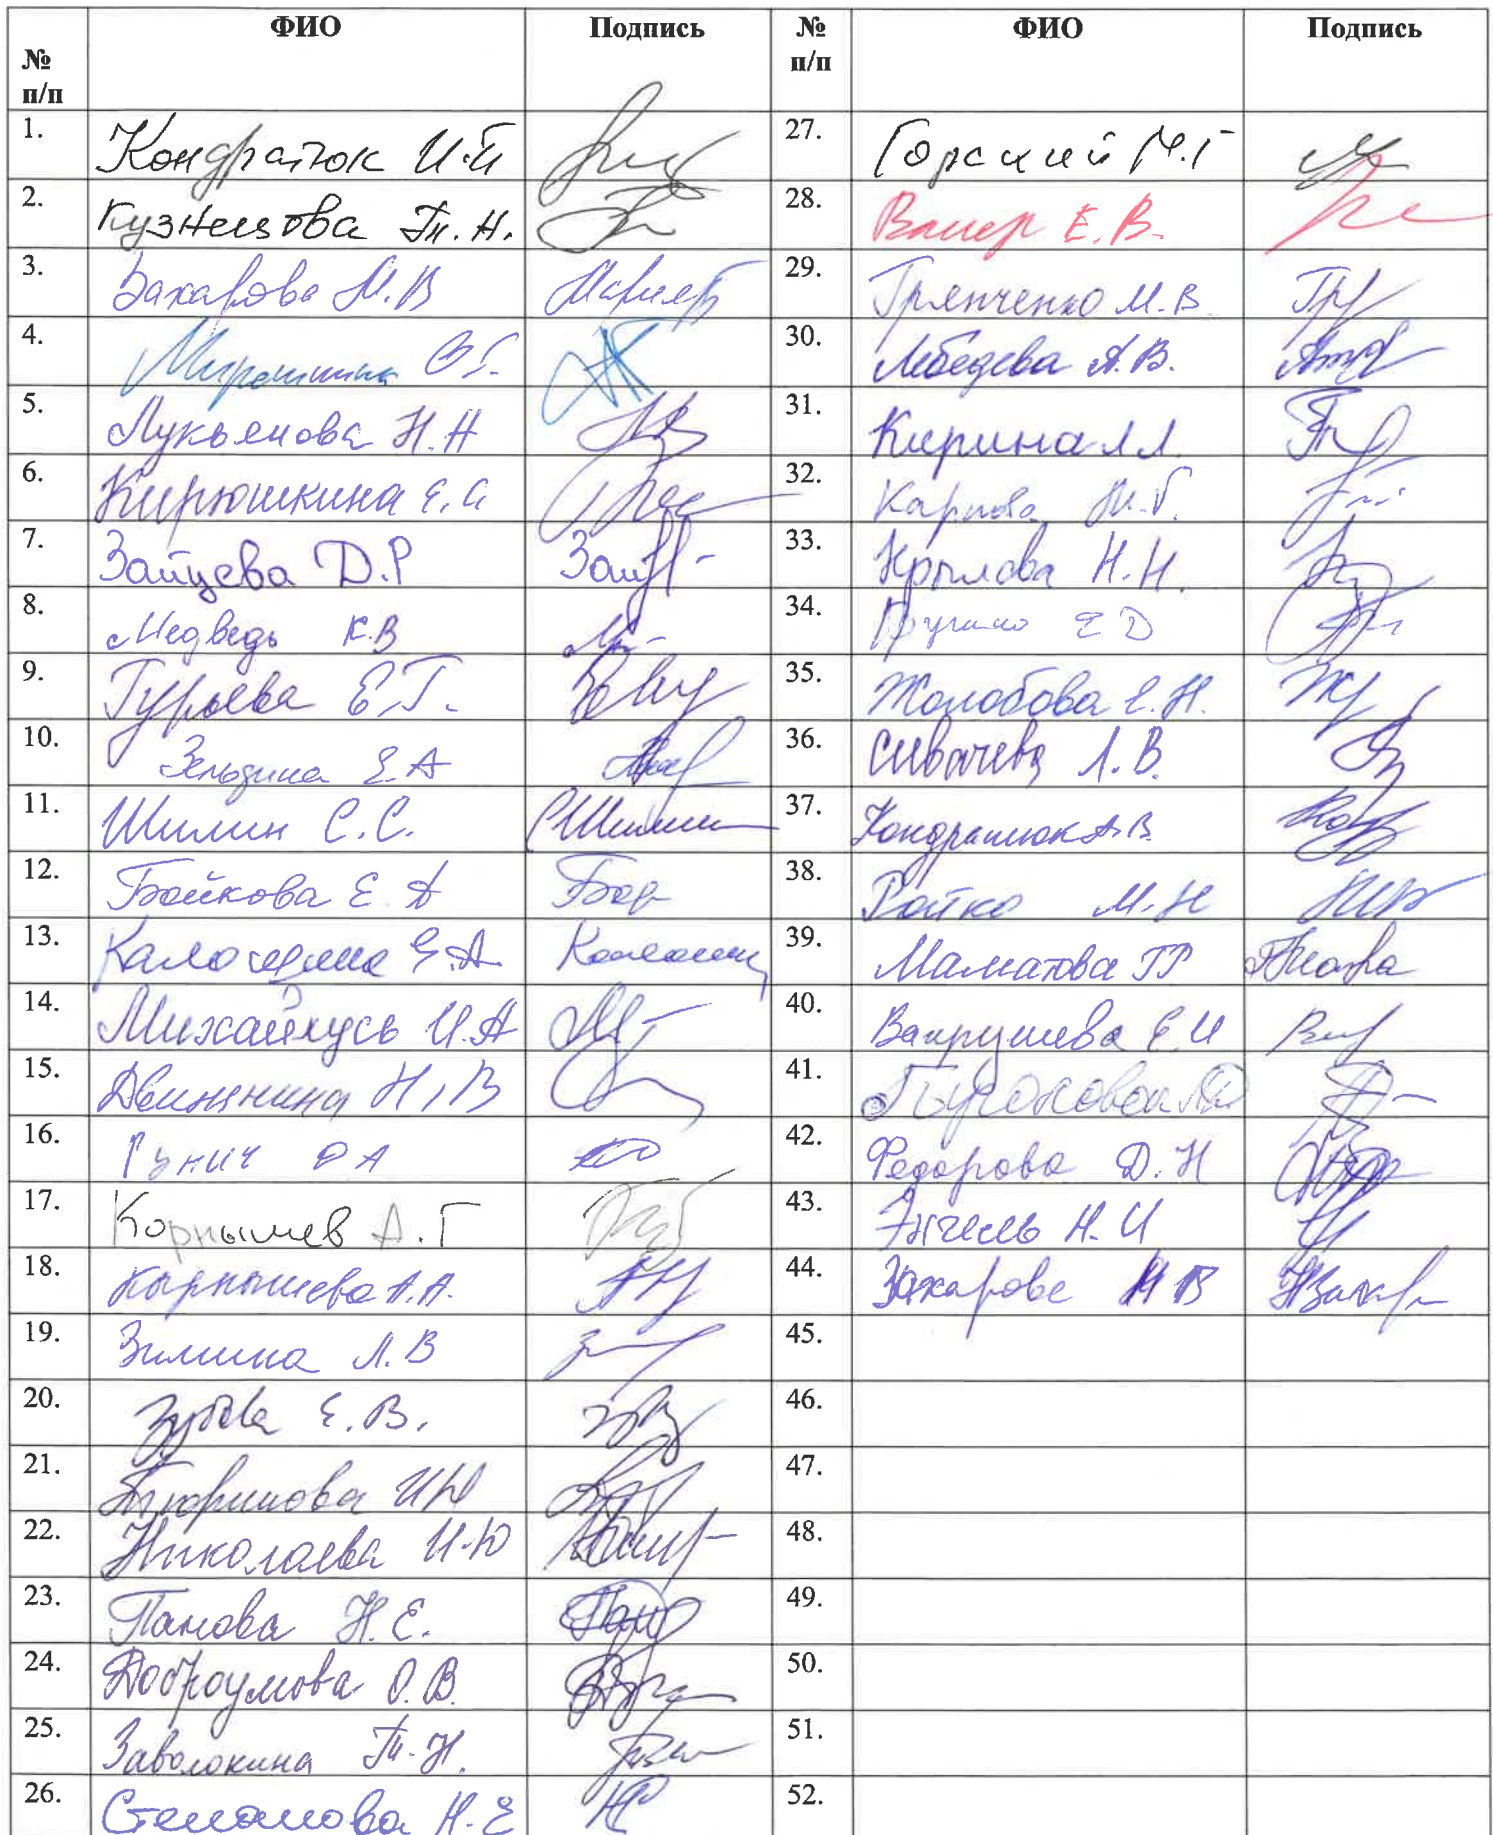 № п/п ФИО Подпись № п/п ФИО Подпись
1. Кондратюк И.И 27. Горский М.Г
2. Кузнецова Т.Н. 28. Е.В.
3. Захарова М.В 29. Гринченко М.В
4. Мирошкина В.Г. 30. Лебедева А.В.
5. Лукьянова Н.Н 31. Кирина Л.Л.
6. Кирюшкина Е.А 32. Карпова М.Г.
7. Зайцева Д.Р Зай 33. Крылова Н.Н.
8. Медведь К.В 34. Е Д
9. Гурьева Е.Г. 35. Жолобова Е.Н.
10. Зельдина Е.А 36. Сивачева Л.В.
11. Шилин С.С. 37. Кондратюк А.В.
12. Бойкова Е.А 38. Ройко М.Н
13. Е.А. 39. Маматова ГР
14. Михайлусь И.А 40. Вахрушева Е.И
15. Движнина Н.В 41.
16. Рунич О А 42. Федорова Д.Н
17. Корнышев А.Г 43. Энгель Н.И
18. Корнышева А.А. 44. Захарова Н В
19. Зимина Л.В 45.
20. Зубова Е.В. 46.
21. И.Ю 47.
22. Николаева И.Ю 48.
23. Панова Н.Е. 49.
24. Доброумова О.В. 50.
25. Заволокина Т.Н. 51.
26. Степанова Н.Е 52.